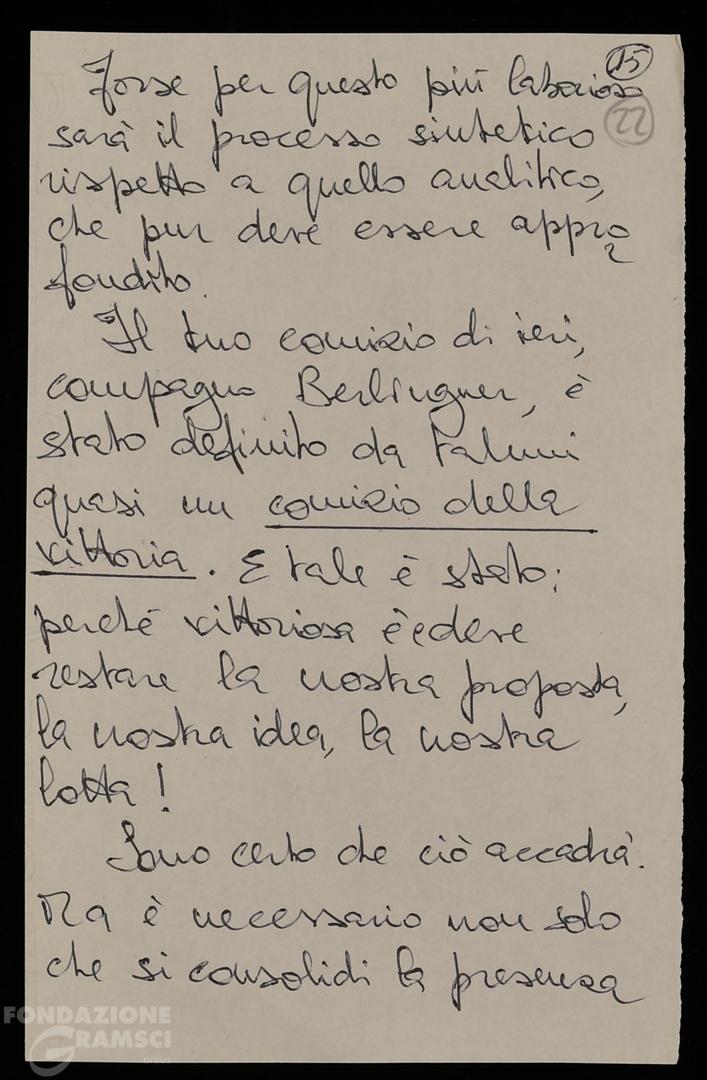 15
22
Forse per questo più laborioso
sarà il processo sintetico
rispetto a quello analitico,
che pur deve essere appro
fondito.
Il tuo comizio di ieri,
compagno Berlinguer, è
stato definito da taluni
quasi un comizio della
vittoria. E tale è stato;
perché vittoriosa è e deve
restare la nostra proposta,
la nostra idea, la nostra
lotta!
Sono certo che ciò accadrà.
Ma è necessario non solo
che si consolidi la presenza
FONDAZIONE
GRAMSCI
onlus